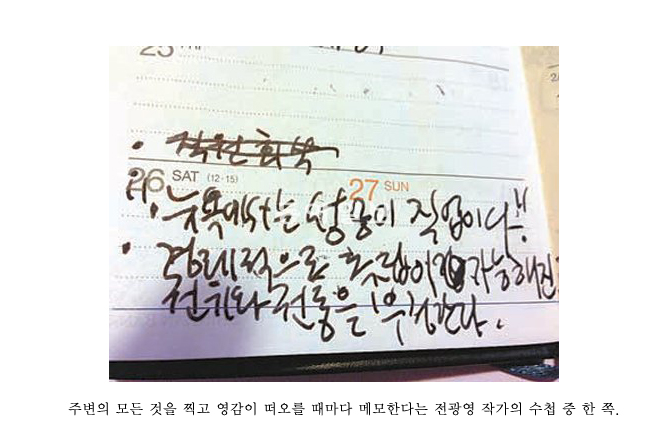 25 FRI
• 직원회식
26 SAT (12·15) 27 SUN
• 뉴욕에서는 상공이 직업이다!!
• 경제적으로 독립이 가능해진
권위와 전통을 부정한다.
주변의 모든 것을 찍고 영감이 떠오를 때마다 메모한다는 전광영 작가의 수첩 중 한 쪽.